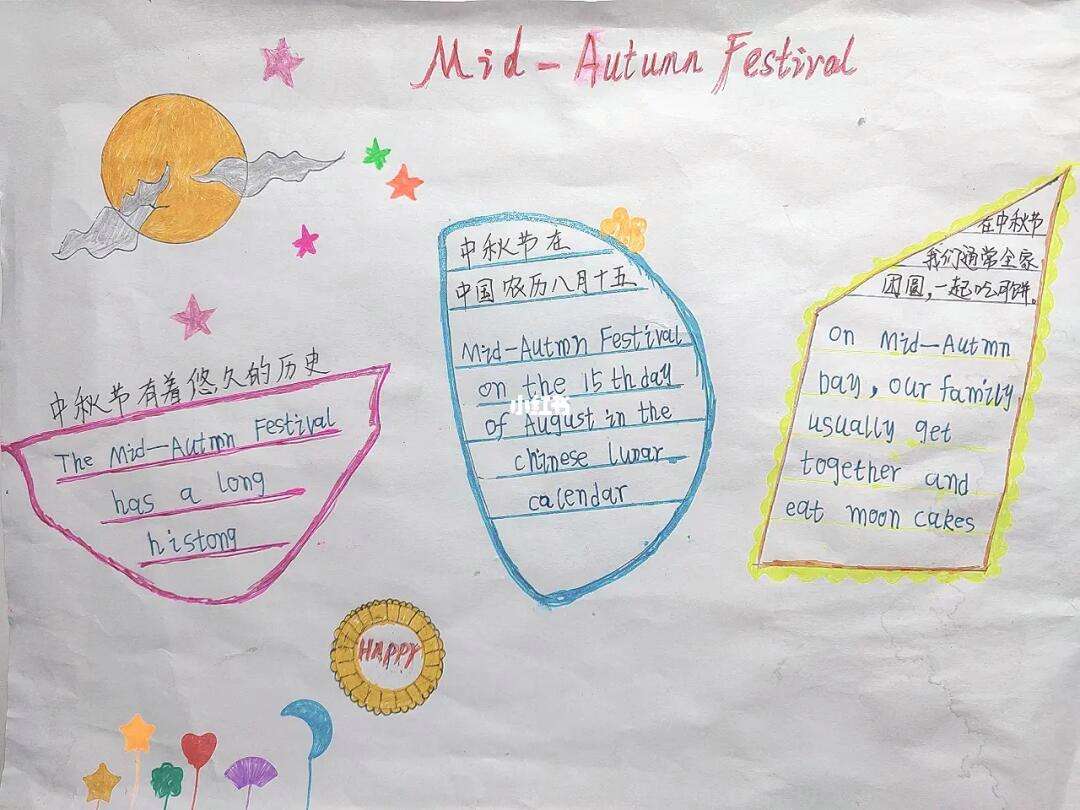 Mid-Autumn Festival
中秋节有着悠久的历史
The Mid-Autmn Festival
has a long
histong
中秋节在
中国农历八月十五
Mid-Autmn Festival
on the 15th day
of August in the
chinese lunar
calendar
小红书
在中秋节
我们通常全家
团圆,一起吃月饼。
on Mid-Autmn
Day, our family
usually get
together and
eat moon cakes
HAPPY